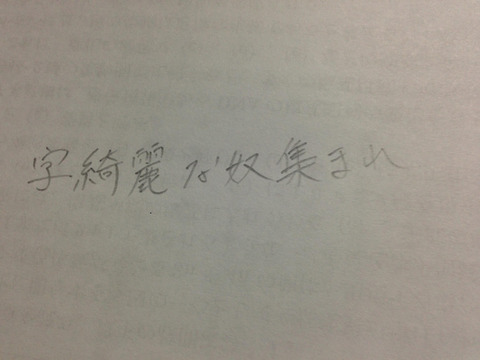 字綺麗な奴集まれ